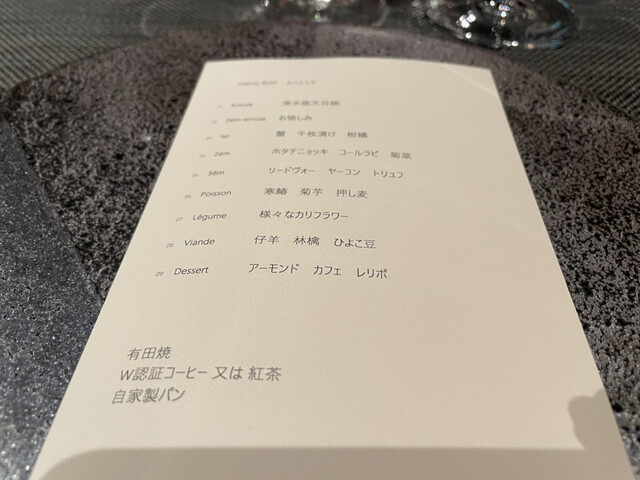 01 Amuse 清水焼天目碗
02 2ém-amuse お愉しみ
03 1er 蟹 千枚漬け 柑橘
04 2ém ホタテニョッキ コールラビ 菊菜
05 3ém リードヴォー ヤーコン トリュフ
06 Poisson 寒鰆 菊芋 押し麦
07 Légume 様々なカリフラワー
08 Viande 仔羊 林檎 ひよこ豆
09 Dessert アーモンド カフェ レリボ
有田焼
W認証コーヒー 又は 紅茶
自家製パン